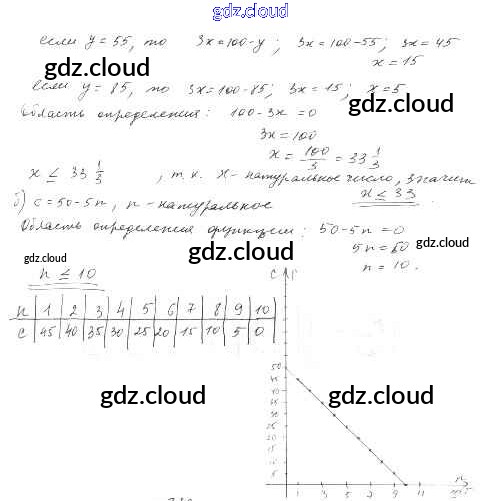 gdz.cloud
если y = 55, то 3x = 100 - y; 3x = 100 - 55; 3x = 45
x = 15
gdz.cloud gdz.cloud
если y = 85, то 3x = 100 - 85; 3x = 15; x = 5
gdz.cloud
Область определения: 100 - 3x = 0
3x = 100
x = 100/3 = 33 1/3
x ≤ 33 1/3, т.к. x - натуральное число, значит
x ≤ 33
б) c = 50 - 5n, n - натуральное
Область определения функции: 50 - 5n = 0
gdz.cloud gdz.cloud gdz.cloud
5n = 50
n = 10.
n ≤ 10
n 1 2 3 4 5 6 7 8 9 10
c 45 40 35 30 25 20 15 10 5 0
gdz.cloud
c
50
45
40
35
30
25
20
15
10
5
1 3 5 7 9 11
n
gdz.cloud gdz.cloud